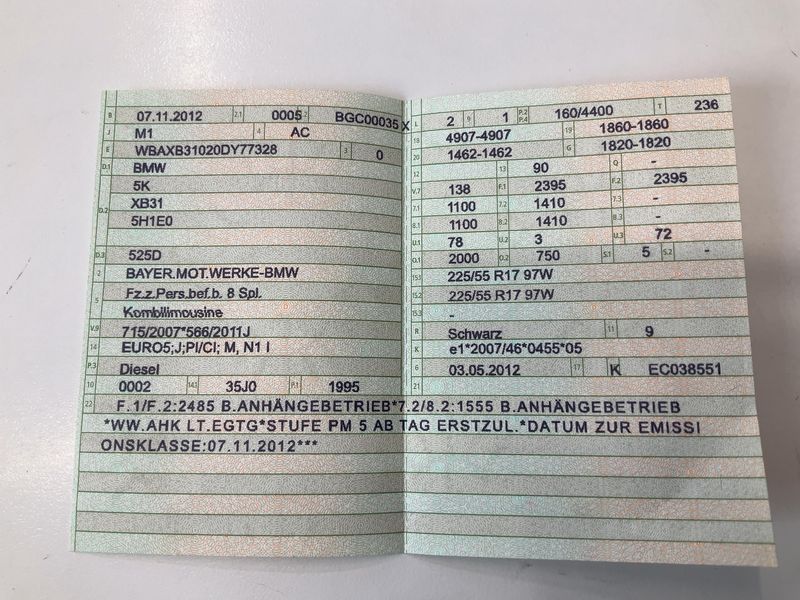 B 07.11.2012 2.1 0005 2.2 BGC00035 X
J M1 4 AC
E WBAXB31020DY77328 3 0
D.1 BMW
5K
D.2 XB31
5H1E0
D.3 525D
2 BAYER.MOT.WERKE-BMW
5 Fz.z.Pers.bef.b. 8 Spl.
Kombilimousine
V.9 715/2007*566/2011J
14 EURO5;J;PI/CI; M, N1 I
P.3 Diesel
10 0002 14.1 35J0 P.1 1995
L 2 9 1 P.2 P.4 160/4400 T 236
18 4907-4907 19 1860-1860
20 1462-1462 G 1820-1820
12 - 13 90 Q -
V.7 138 F.1 2395 F.2 2395
7.1 1100 7.2 1410 7.3 -
8.1 1100 8.2 1410 8.3 -
U.1 78 U.2 3 U.3 72
O.1 2000 O.2 750 S.1 5 S.2 -
15.1 225/55 R17 97W
15.2 225/55 R17 97W
15.3 -
R Schwarz 11 9
K e1*2007/46*0455*05
6 03.05.2012 17 K EC038551
21
22 F.1/F.2:2485 B.ANHÄNGEBETRIEB*7.2/8.2:1555 B.ANHÄNGEBETRIEB
*WW.AHK LT.EGTG*STUFE PM 5 AB TAG ERSTZUL.*DATUM ZUR EMISSI
ONSKLASSE:07.11.2012***